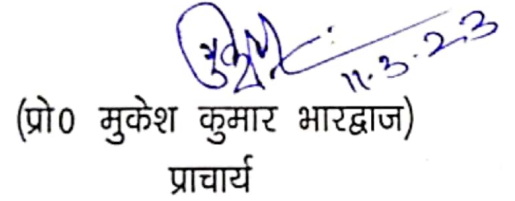 11.3.23
(प्रो0 मुकेश कुमार भारद्वाज)
प्राचार्य